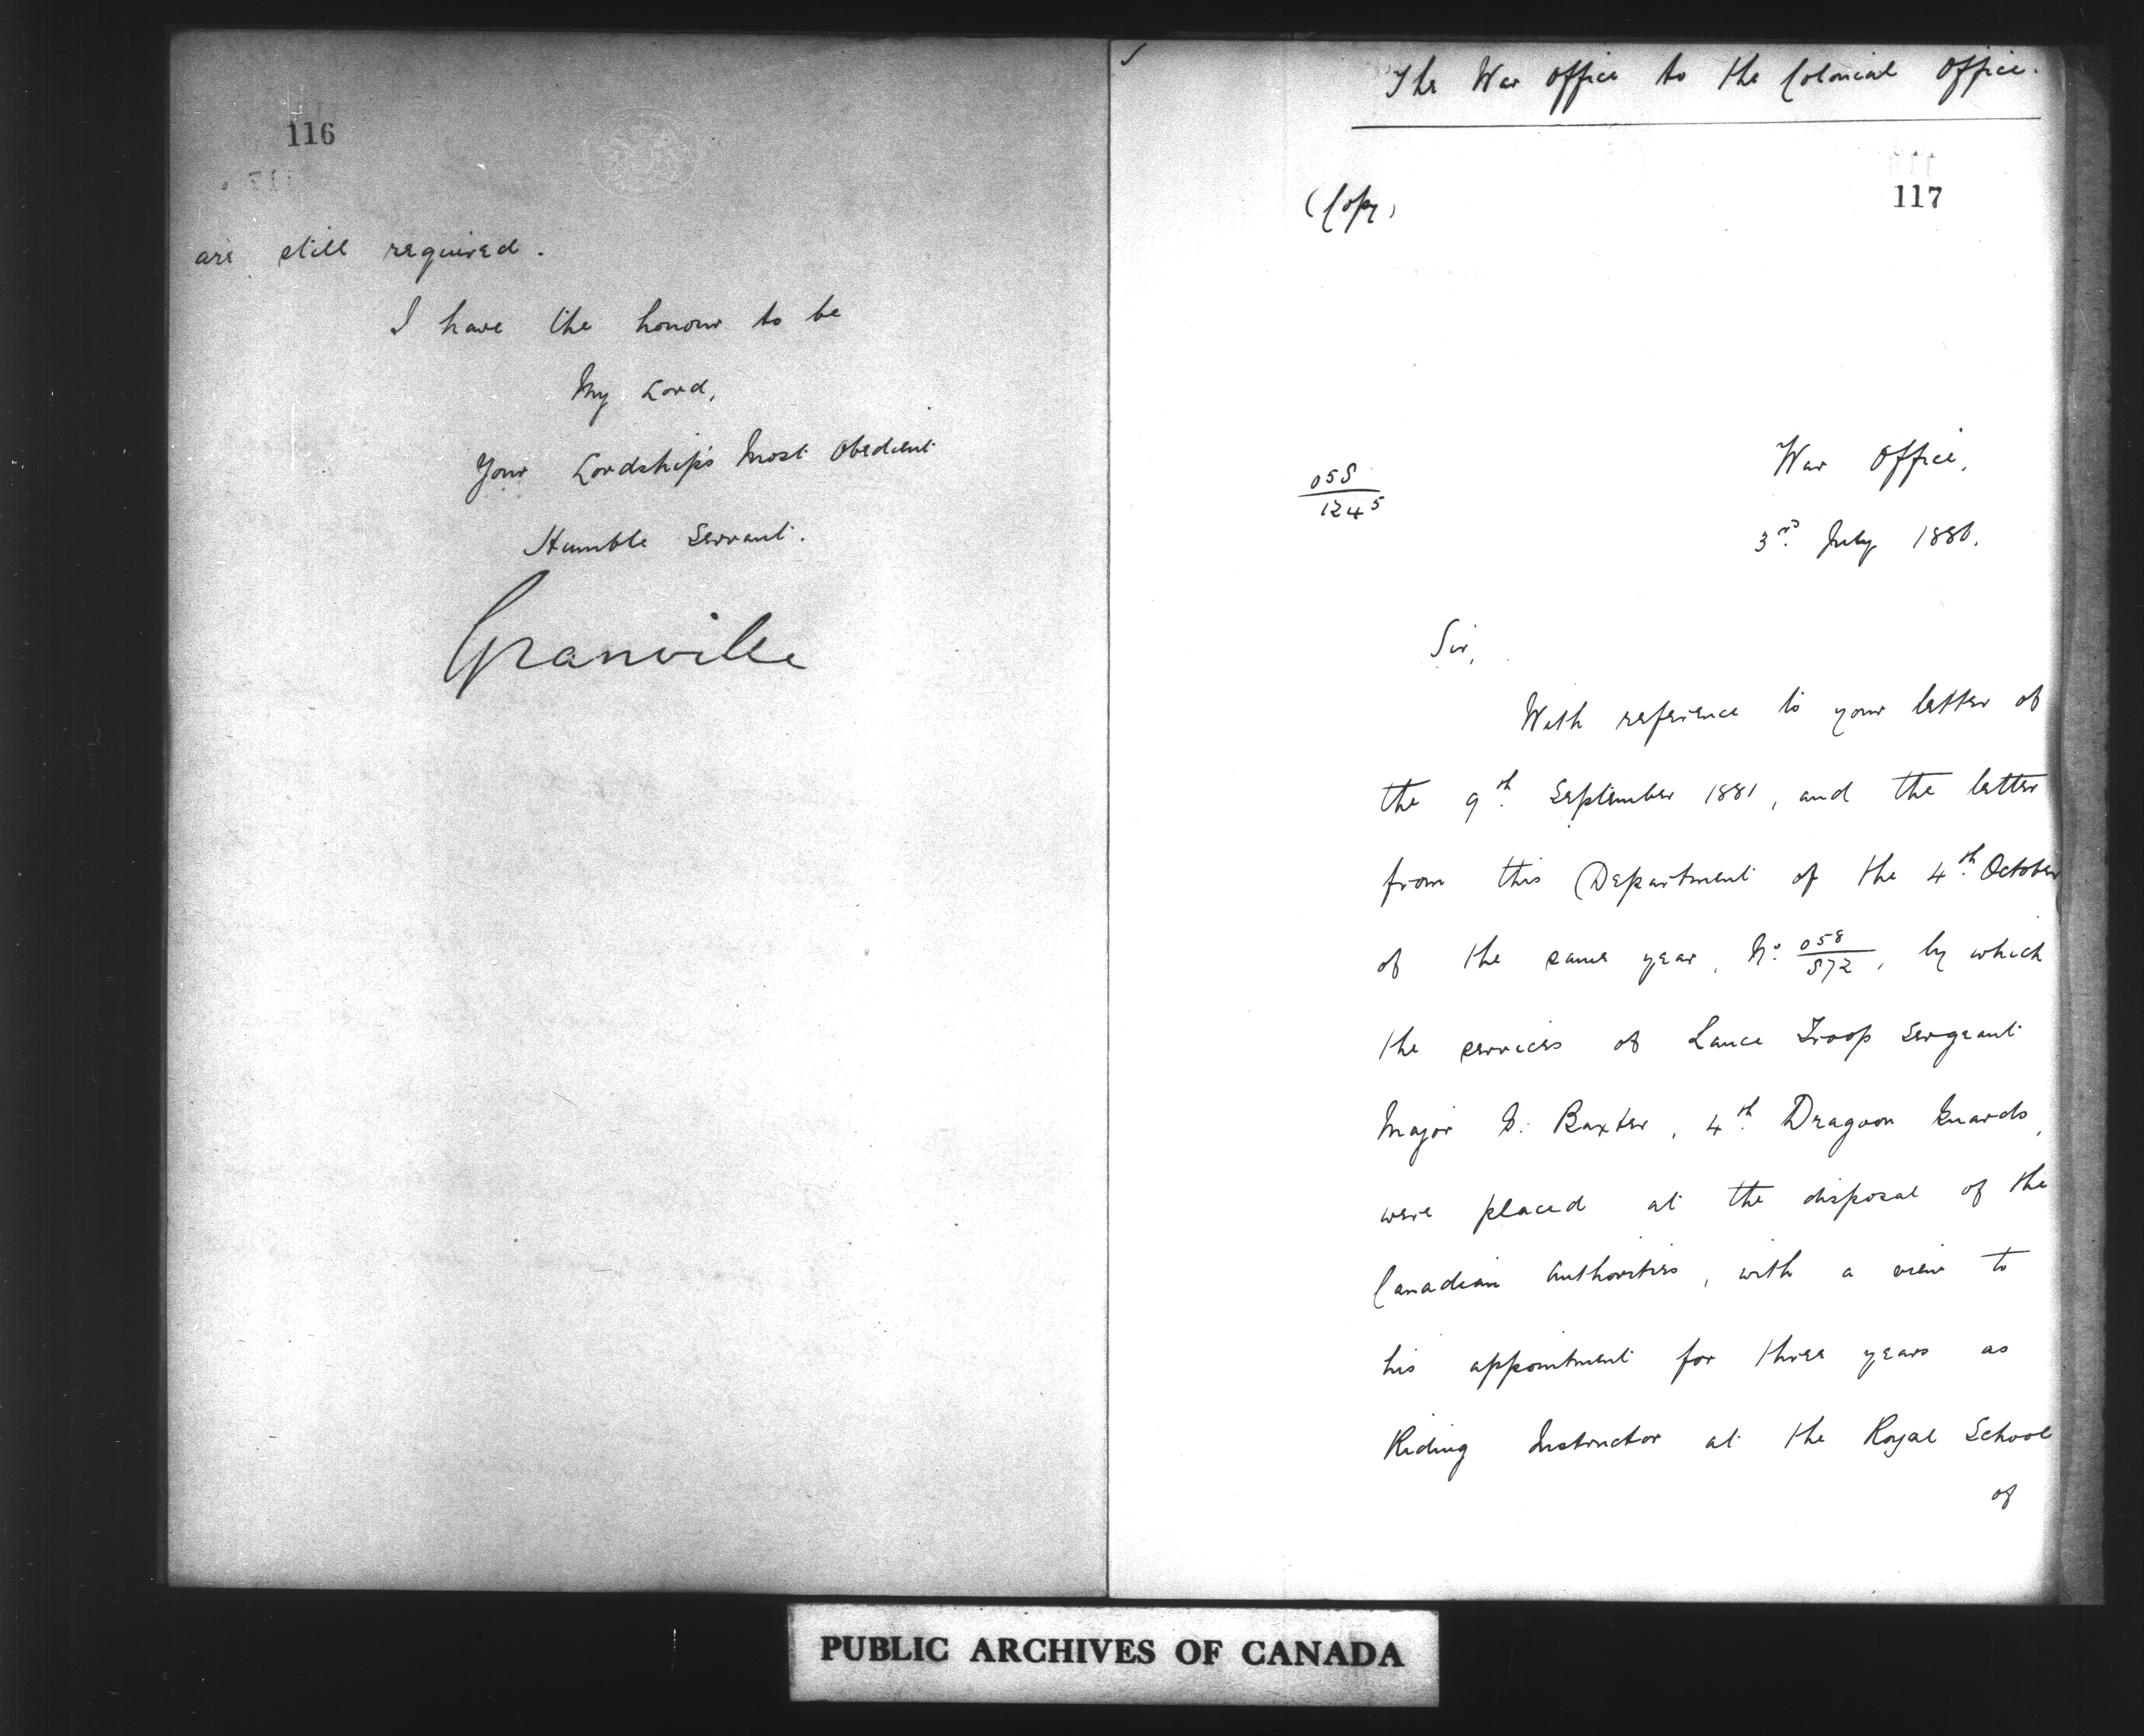 116
are still required.
I have the honour to be
My Lord,
Your Lordship's Most Obedient
Humble Servant.
Granville
The War Office to the Colonial Office.
117
(Copy)
War Office,
058
1245
3rd July 1886.
Sir,
With reference to your letter of
the 9th September 1881, and the letter
from this Department of the 4th October
of the same year, No 058/572, by which
the services of Lance Troop Sergeant
Major Baxter, 4th Dragoon Guards,
were placed at the disposal of the
Canadian Authorities, with a view to
his appointment for three years as
Riding Instructor at the Royal School
of
PUBLIC ARCHIVES OF CANADA